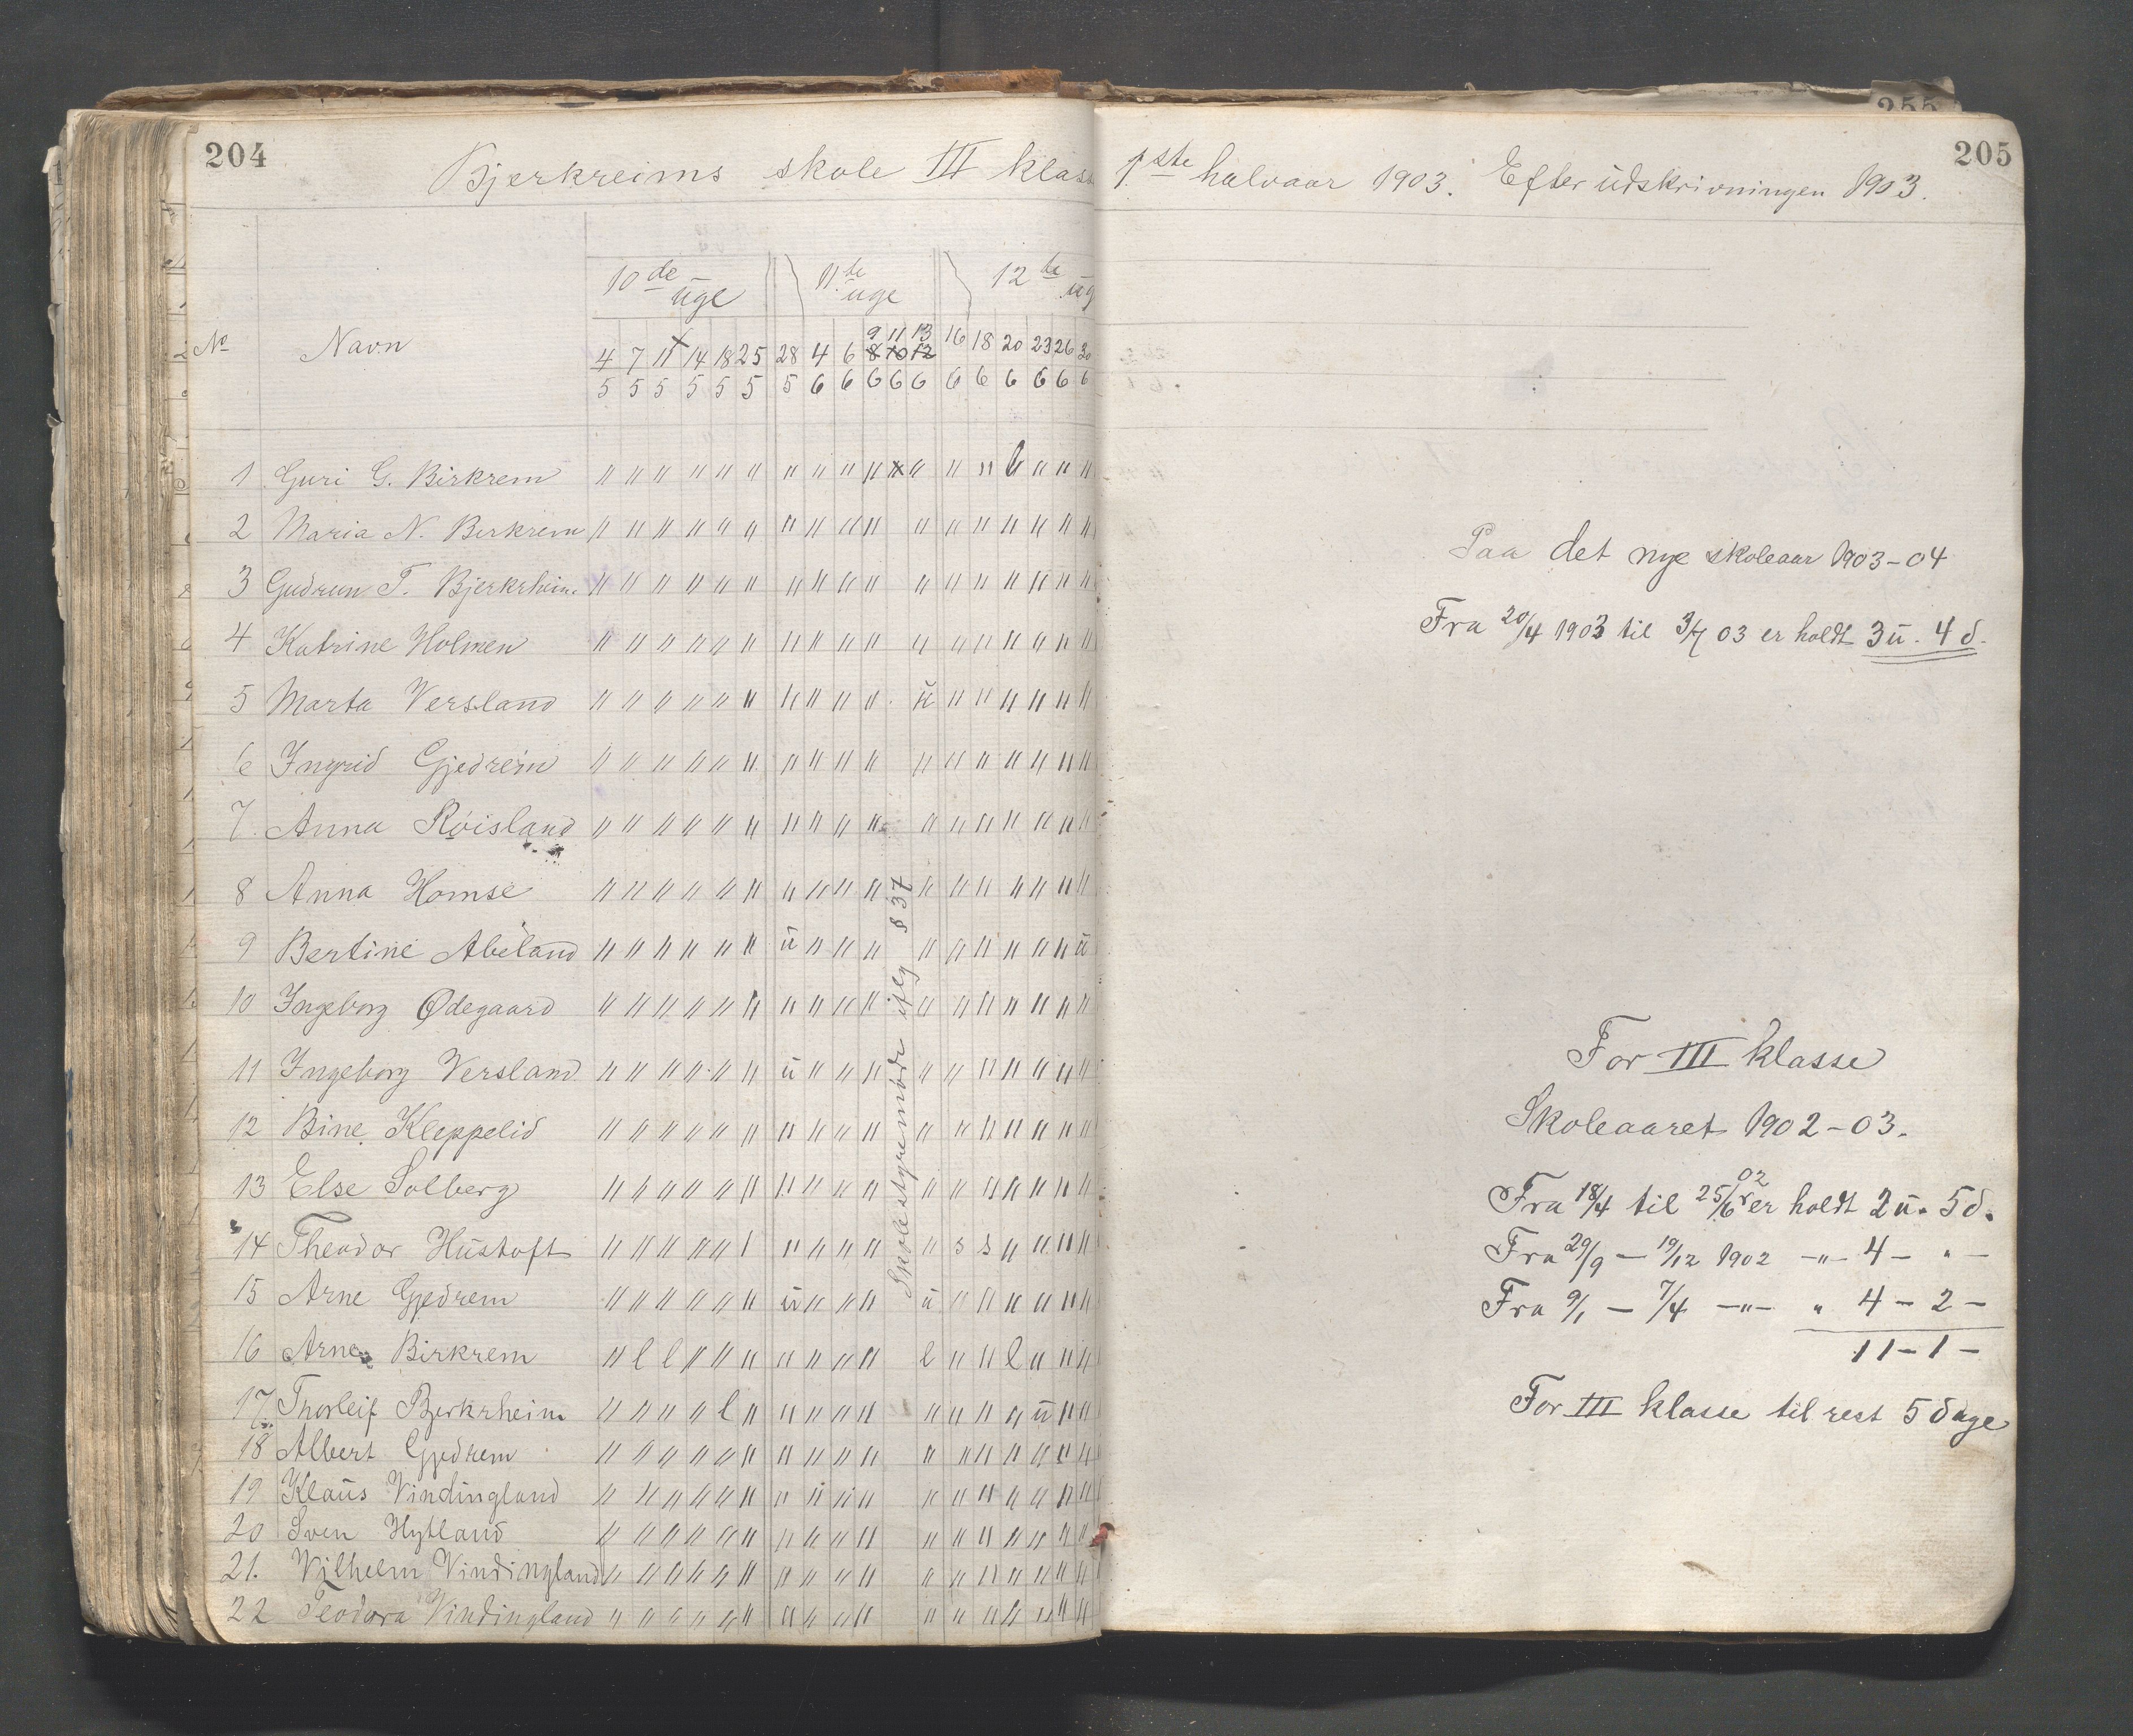 204
Bjerkreims skole III klass
10de uge 11te uge 12te ug
No Navn
9 11 13
4 7 11 14 18 25 28 4 6 8 10 12 16 18 20 23 26 30
5 5 5 5 5 5 5 6 6 6 6 6 6 6 6 6 6 6
1 Guri G. Birkrem
2 Maria N. Birkrem
3 Gudrun T. Bjerkrheim
4 Katrine Holmen
5 Marta Versland
6 Ingrid Gjedrem
7 Anna Røisland
8 Anna Homse
9 Bertine Abeland
10 Ingeborg Ødegaard
11 Ingeborg Versland
12 Bine Kleppelid
13 Else Solberg
14 Theodor Hustoft
15 Arne Gjedrem
16 Arne Birkrem
17 Thorleif Bjerkrheim
18 Albert Gjedrem
19 Klaus Vindingland
20 Sven Hytland
21. Vilhelm Vindingland
22 Teodora Vindingland
Skolestyremøde iflg § 37
255
205
1ste halvaar 1903. Efter udskrivningen 1903.
Paa det nye skoleaar 1903-04
Fra 20/4 1903 til 3/7 03 er holdt 3 u. 4 d.
For III klasse
Skoleaaret 1902-03.
Fra 18/4 til 25/6 02 er holdt 2 u. 5 d.
Fra 29/9 — 19/12 1902 —"— 4 — " —
Fra 9/1 — 7/4 —"— " 4 — 2 —
11 — 1 —
For III klasse til rest 5 dage